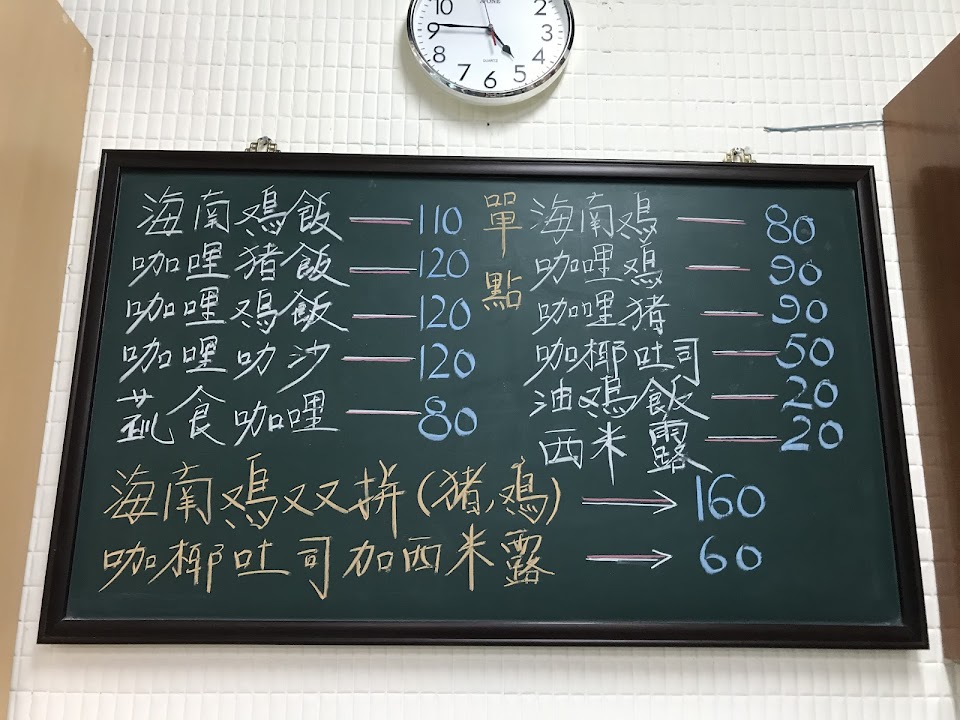 10 2
9
8 4
7 6 5
QUARTZ
海南鸡飯 — 110
咖哩猪飯 — 120
咖哩鸡飯 — 120
咖哩叻沙 — 120
蔬食咖哩 — 80
單點
海南鸡 — 80
咖哩鸡 — 90
咖哩猪 — 90
咖椰吐司 — 50
油鸡飯 — 20
西米露 — 20
海南鸡双拼(猪,鸡) → 160
咖椰吐司加西米露 → 60